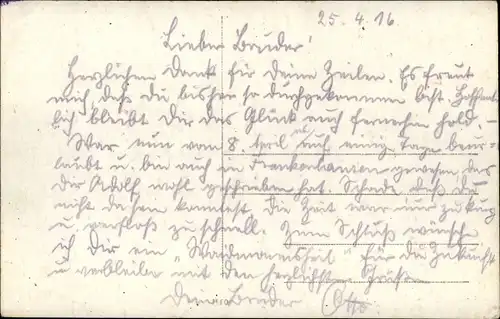 25. 4. 16.
Lieber Bruder!
Herzlichen Dank für Deine Zeilen. Es freut
mich, daß Du bisher so durchgekommen bist. Hoffent-
lich bleibt Dir das Glück auch fernerhin hold. –
War nun vom 8. April ab auch einige Tage beur-
laubt u. bin auch in gewesen, was
Dir Adolf wohl geschrieben hat. Schade, daß Du
nicht da sein konntest. Die Zeit war nur zu kurz
u. verfloß zu schnell. Zum Schluß wünsche
ich Dir ein „Waidmannsheil" für die Zukunft
u. verbleibe mit den herzlichsten Grüßen
Dein Bruder Otto.